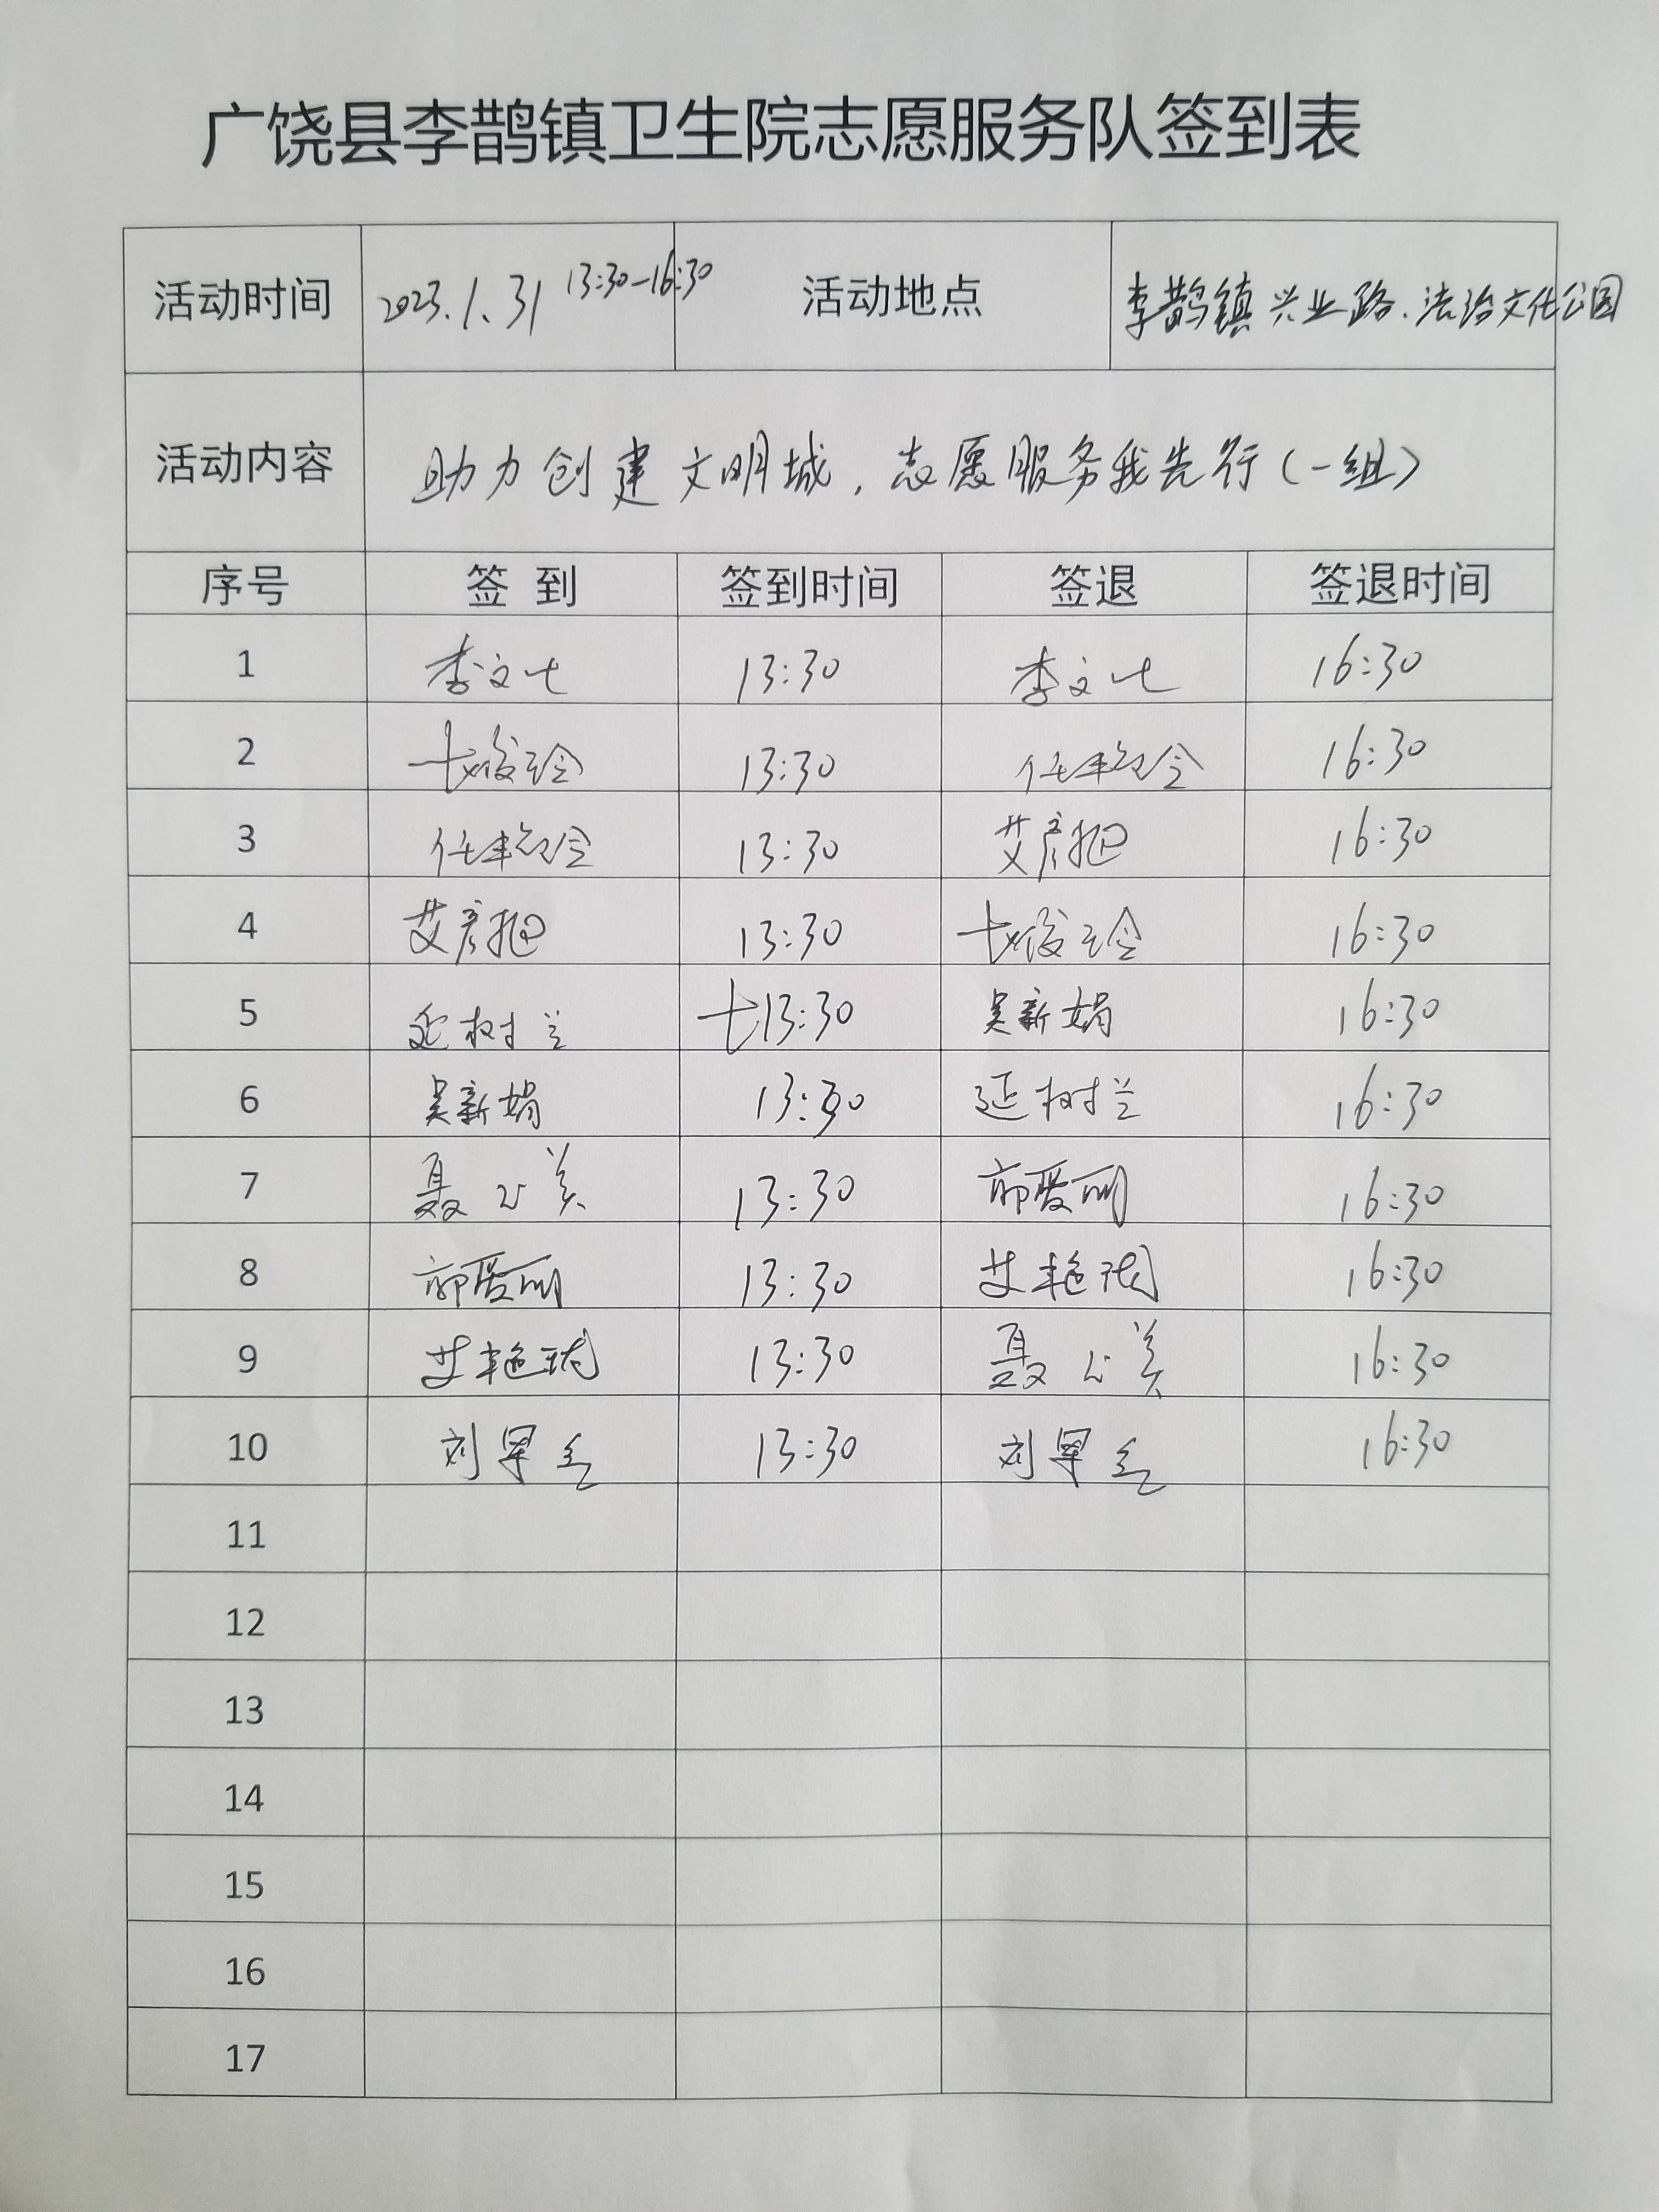 广饶县李鹊镇卫生院志愿服务队签到表
活动时间 2023.1.31 13:30-16:30 活动地点 李鹊镇兴业路、法治文化公园
活动内容 助力创建文明城，志愿服务我先行（一组）
序号 签到 签到时间 签退 签退时间
1 李文七 13:30 李文七 16:30
2 13:30 16:30
3 13:30 艾彦 16:30
4 艾彦 13:30 16:30
5 延树兰 13:30 吴新娟 16:30
6 吴新娟 13:30 延树兰 16:30
7 聂 美 13:30 郭爱丽 16:30
8 郭爱丽 13:30 艾艳 16:30
9 艾艳 13:30 聂 美 16:30
10 刘军 13:30 刘军 16:30
11
12
13
14
15
16
17